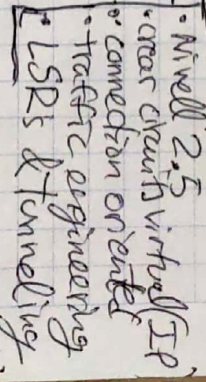 • Nivell 2.5
• crear circuits virtual (IP,
• connection oriented
• traffic engineering
• LSRs & tunneling